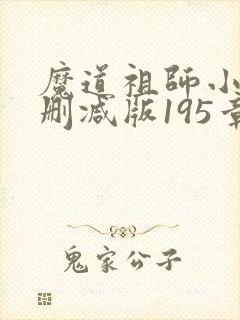 魔道祖師小
刪減版195章
鬼家公子